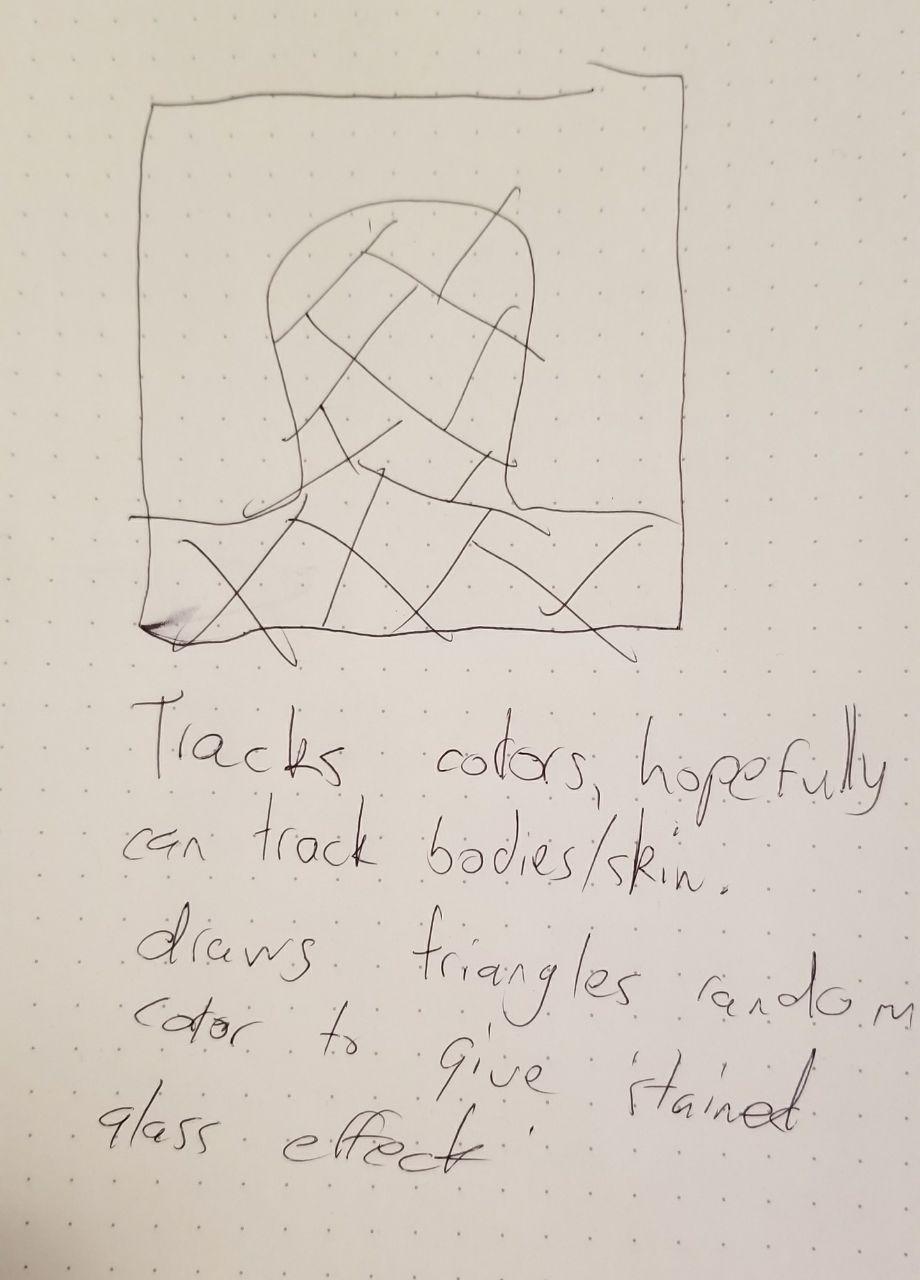 Tracks colors, hopefully
can track bodies/skin.
draws triangles random
color to give 'stained
glass effect'